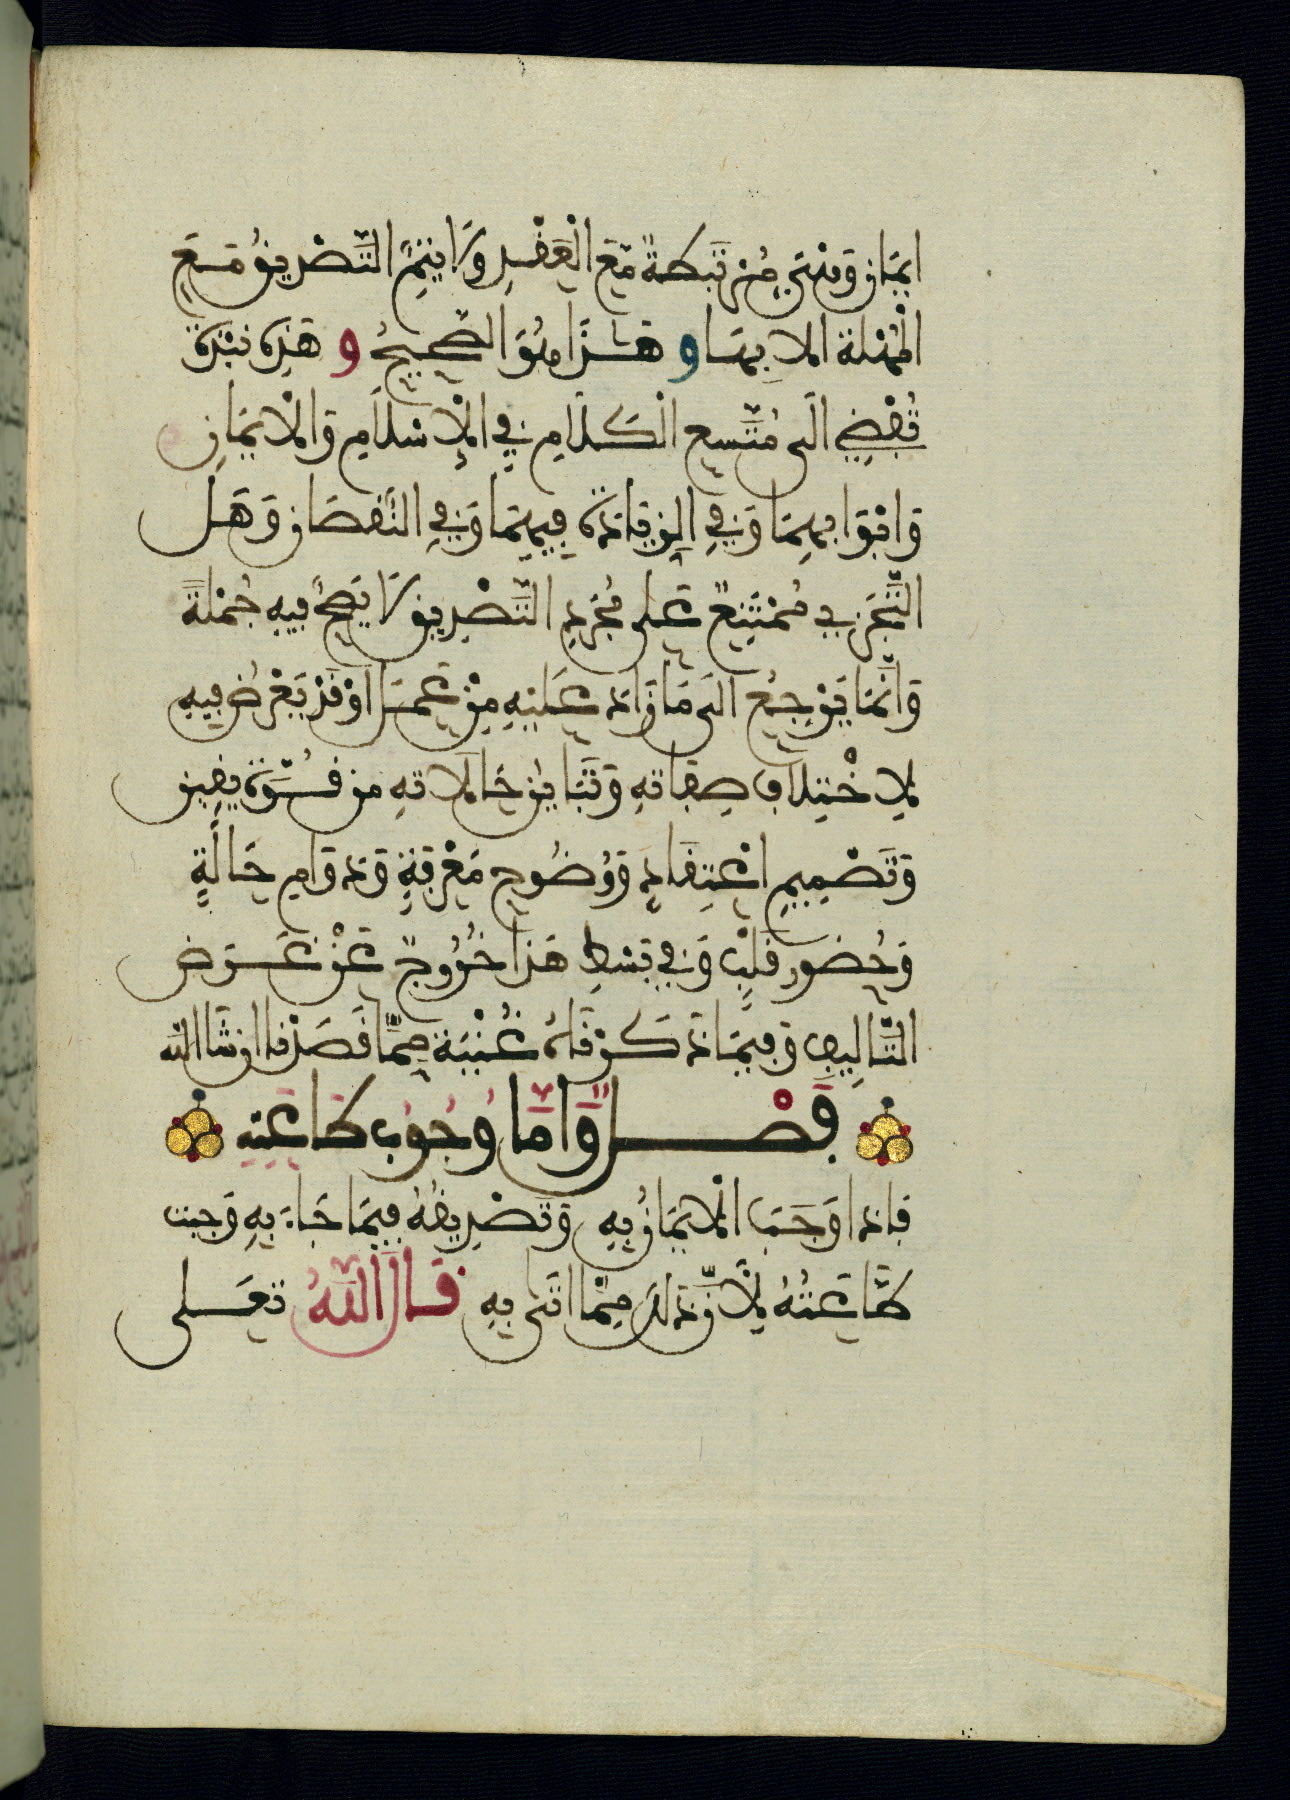 ايمان وهي مرتبطة مع العقد ولا يتم التصديق مع
المهلة الا بها وهذا هو الصحيح وهذه نبذة
تفضي الى متسع الكلام في الاسلام والايمان
وابوابهما وفي الزيادة فيهما وفي النقصان وهل
التجزي ممتنع على مجرد التصديق لا يصح فيه جملة
وانما يرجع الى ما زاد عليه من عمل او قد يعرض فيه
لاختلاف صفاته وتباين حالاته من قوة يقين
وتصميم اعتقاد ووضوح معرفة ودوام حالة
وحضور قلب وفي بسط هذا خروج عن غرض
التاليف وفيما ذكرناه غنية مما قصدنا ان شا الله
فصل واما وجوب طاعته
فاذا وجب الايمان به وتصديقه فيما جاء به وجبت
طاعته لان ذلك مما اتى به قال الله تعلى